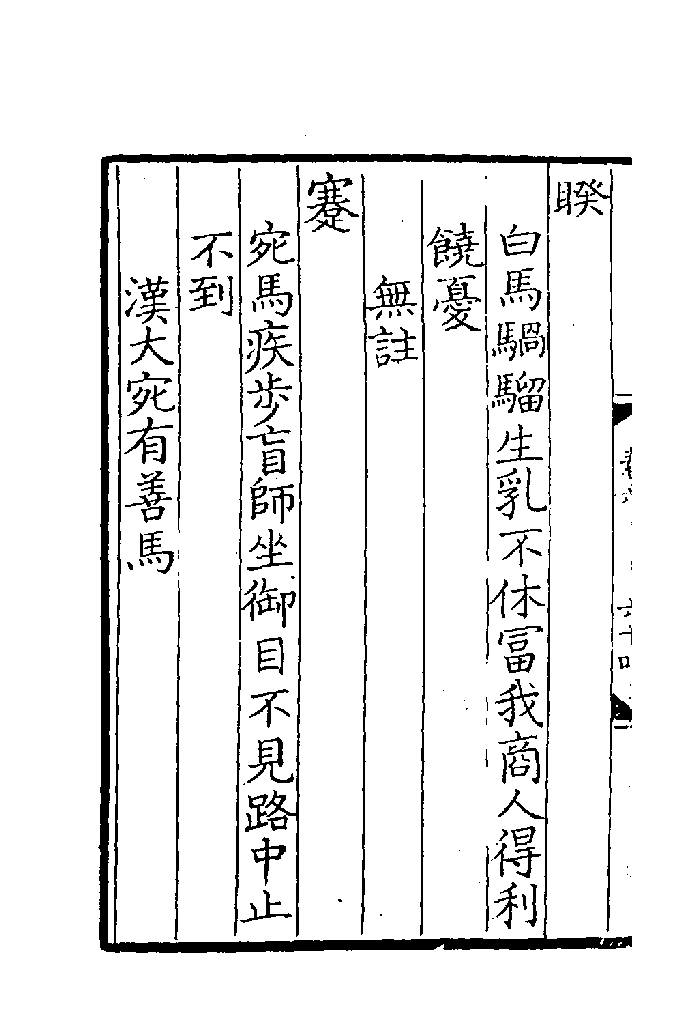 睽
白馬騧騮生乳不休富我商人得利
饒憂
無註
蹇
宛馬疾步盲師坐御目不見路中止
不到
漢大宛有善馬